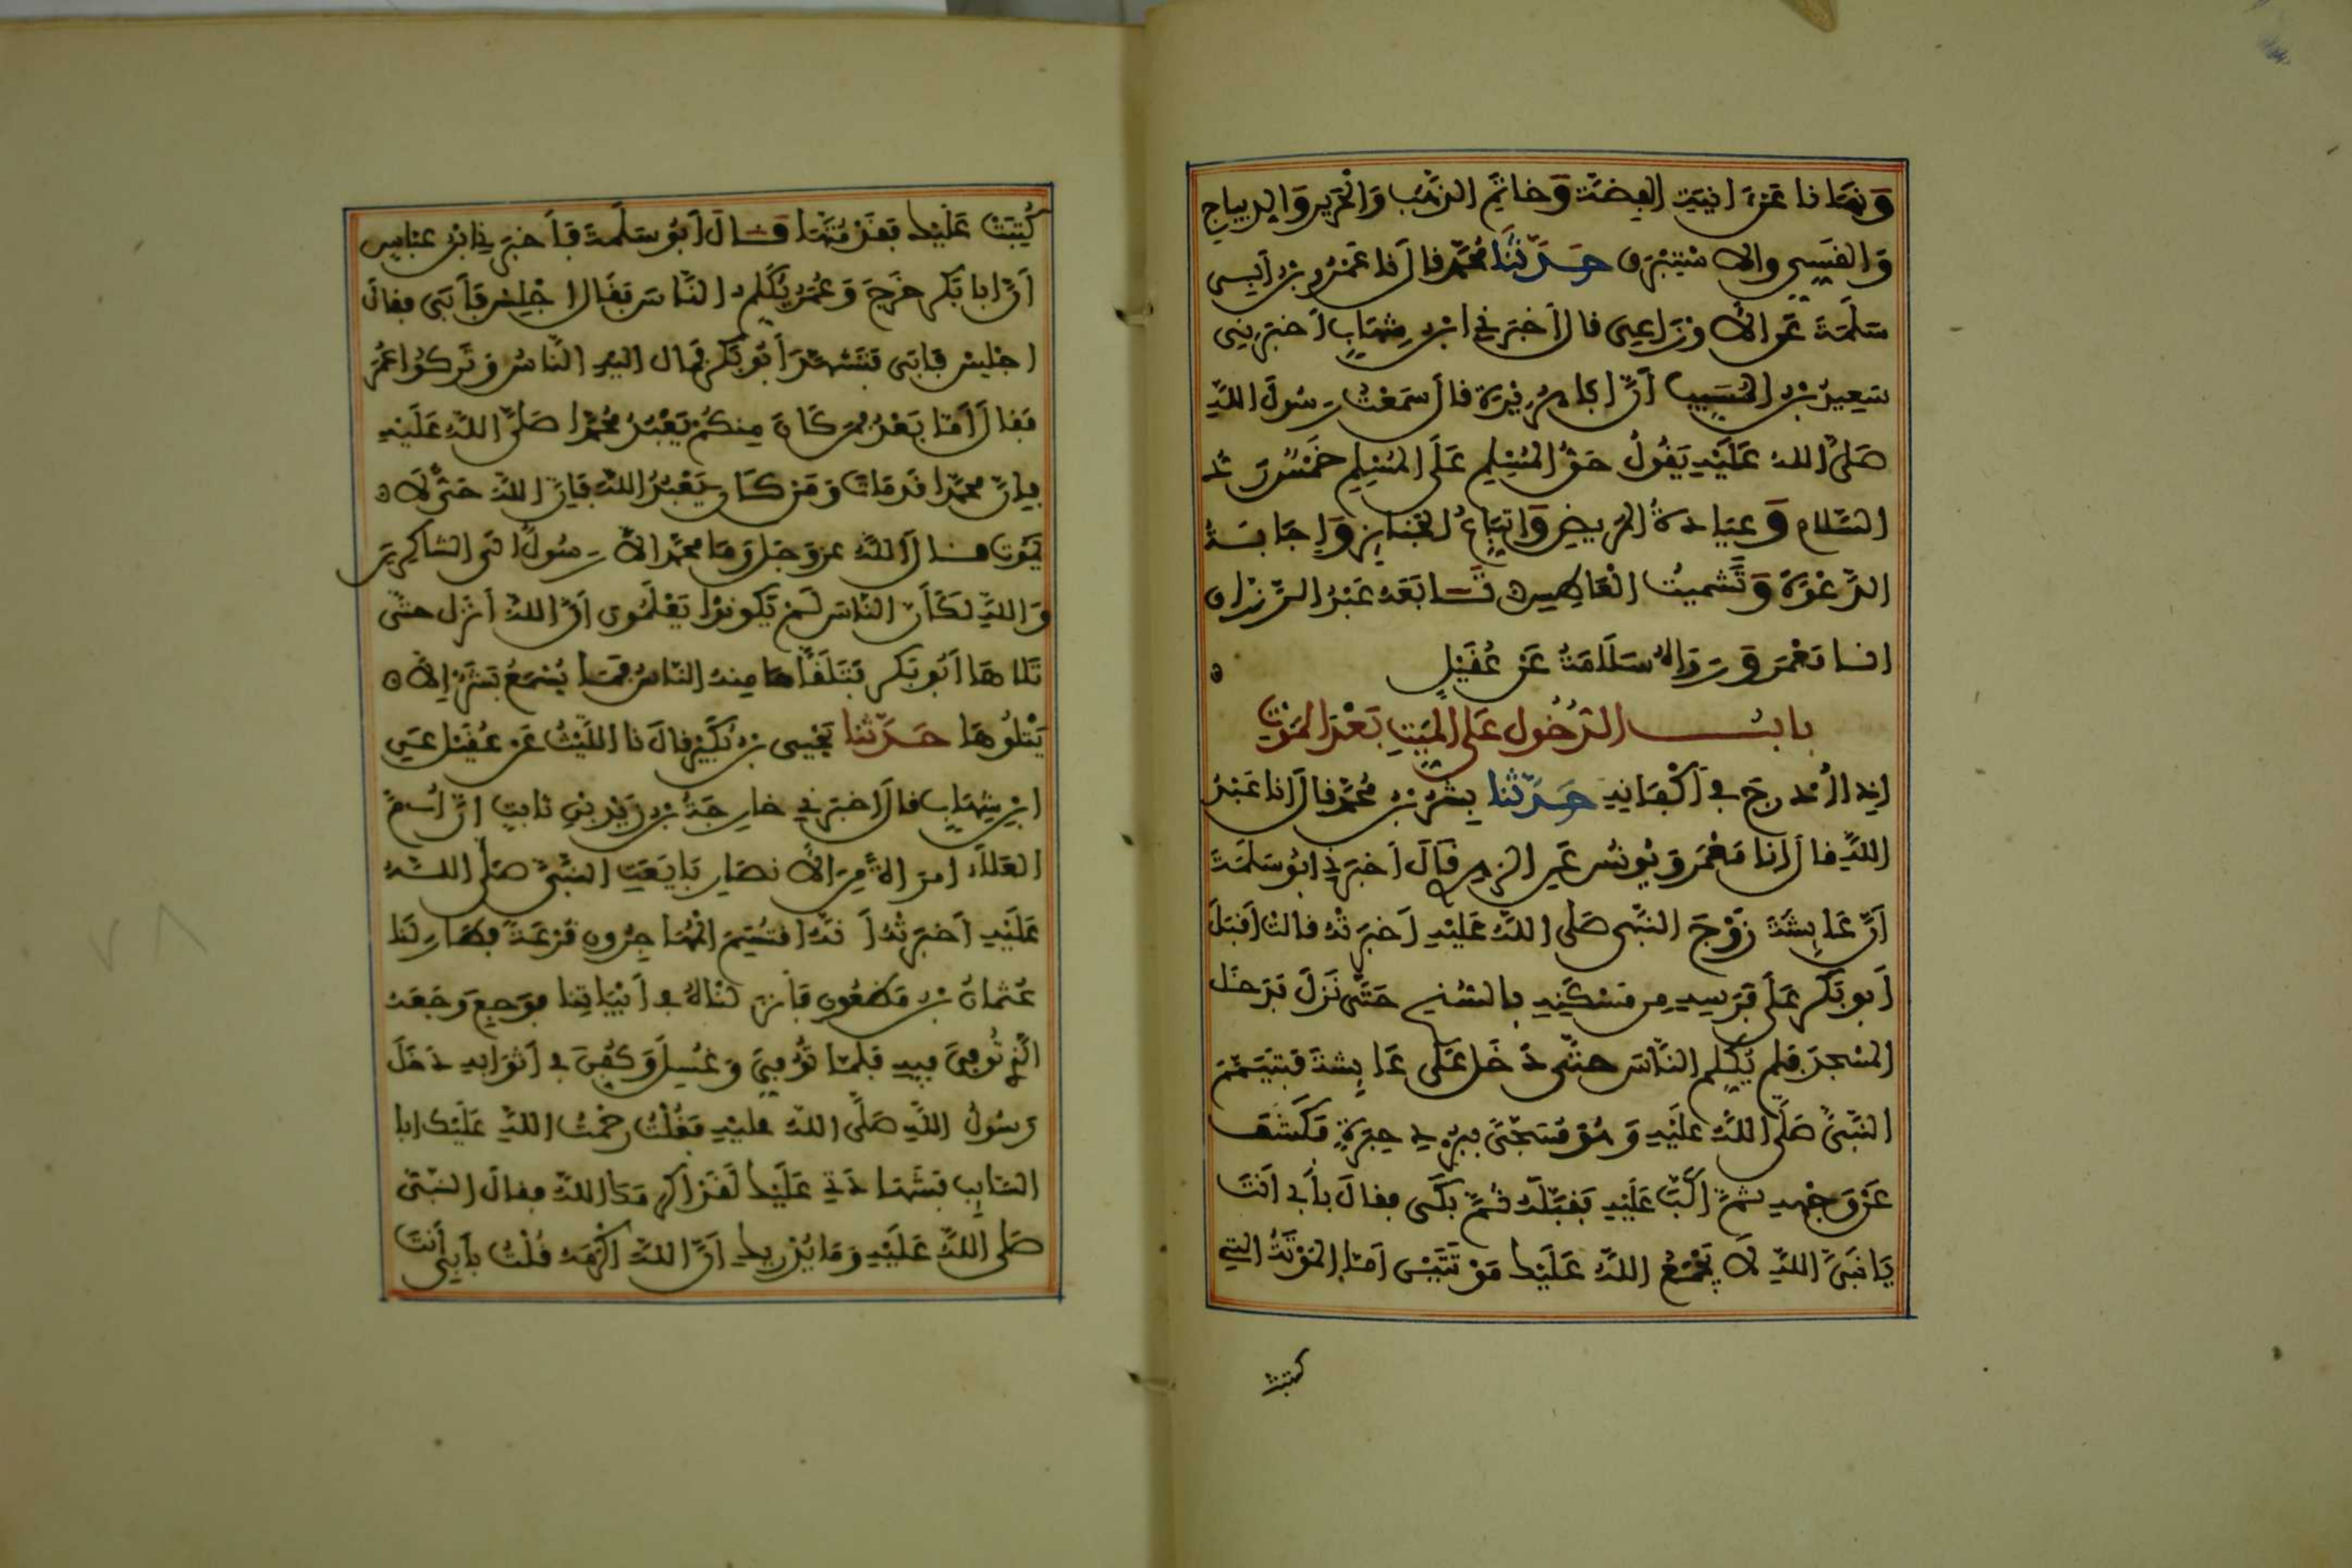 وَنَهَانَا عَنْ آنِيَةِ الفِضَّةِ وَخَاتَمِ الذَّهَبِ وَالْحَرِيرِ وَالدِّيبَاجِ
وَالقَسِّيِّ وَالاسْتَبْرَقِ حَدَّثَنَا مُحَمَّدٌ قَالَ نَا عَمْرُو بْنُ أَبِي
سَلَمَةَ عَنِ الأَوْزَاعِيِّ قَالَ أَخْبَرَنِي ابْنُ شِهَابٍ أَخْبَرَنِي
سَعِيدُ بْنُ الْمُسَيِّبِ أَنَّ أَبَا هُرَيْرَةَ قَالَ سَمِعْتُ رَسُولَ اللَّهِ
صَلَّى اللهُ عَلَيْهِ يَقُولُ حَقُّ الْمُسْلِمِ عَلَى الْمُسْلِمِ خَمْسٌ رَدُّ
السَّلَامِ وَعِيَادَةُ الْمَرِيضِ وَاتِّبَاعُ الْجَنَائِزِ وَإِجَابَةُ
الدَّعْوَةِ وَتَشْمِيتُ الْعَاطِسِ تَابَعَهُ عَبْدُ الرَّزَّاقِ
انا مَعْمَرٌ وَرَوَاهُ سَلَامَةُ عَنْ عُقَيْلٍ
بابُ الدُّخُولِ عَلَى الْمَيِّتِ بَعْدَ الْمَوْتِ
إِذَا أُدْرِجَ فِي أَكْفَانِهِ حَدَّثَنَا بِشْرُ بْنُ مُحَمَّدٍ قَالَ انَا عَبْدُ
اللَّهِ قَالَ انَا مَعْمَرٌ وَيُونُسُ عَنِ الزهري قَالَ أَخْبَرَنِي أَبُو سَلَمَةَ
أَنَّ عَائِشَةَ زَوْجَ النَّبِيِّ صَلَّى اللَّهُ عَلَيْهِ أَخْبَرَتْهُ قَالَتْ أَقْبَلَ
أَبُو بَكْرٍ عَلَى فَرَسِهِ مِنْ مَسْكَنِهِ بِالسُّنْحِ حَتَّى نَزَلَ فَدَخَلَ
الْمَسْجِدَ فَلَمْ يُكَلِّمِ النَّاسَ حَتَّى دَخَلَ عَلَى عَائِشَةَ فَتَيَمَّمَ
النَّبِيَّ صَلَّى اللَّهُ عَلَيْهِ وَهُوَ مُسَجًّى بِبُرْدِ حِبَرَةٍ فَكَشَفَ
عَنْ وَجْهِهِ ثُمَّ أَكَبَّ عَلَيْهِ فَقَبَّلَهُ ثُمَّ بَكَى فَقَالَ بِأَبِي أَنْتَ
يَا نَبِيَّ اللَّهِ لَا يَجْمَعُ اللَّهُ عَلَيْكَ مَوْتَتَيْنِ أَمَّا الْمَوْتَةُ الَّتِي
كتبت
كُتِبَتْ عَلَيْكَ فَقَدْ مُتَّهَا قَالَ أَبُو سَلَمَةَ فَأَخْبَرَنِي ابْنُ عَبَّاسٍ
أَنَّ أَبَا بَكْرٍ خَرَجَ وَعُمَرُ يُكَلِّمُ النَّاسَ فَقَالَ اجْلِسْ فَأَبَى فَقَالَ
اجْلِسْ فَأَبَى فَتَشَهَّدَ أَبُو بَكْرٍ فَمَالَ إِلَيْهِ النَّاسُ وَتَرَكُوا عُمَرَ
فَقَالَ أَمَّا بَعْدُ فَمَنْ كَانَ مِنْكُمْ يَعْبُدُ مُحَمَّدًا صَلَّى اللَّهُ عَلَيْهِ
فَإِنَّ مُحَمَّدًا قَدْ مَاتَ وَمَنْ كَانَ يَعْبُدُ اللَّهَ فَإِنَّ اللَّهَ حَيٌّ لَا
يَمُوتُ قَالَ اللَّهُ عَزَّ وَجَلَّ وَمَا مُحَمَّدٌ إِلَّا رَسُولٌ إِلَى الشَّاكِرِينَ
وَاللَّهِ لَكَأَنَّ النَّاسَ لَمْ يَكُونُوا يَعْلَمُونَ أَنَّ اللَّهَ أَنْزَلَ حَتَّى
تَلَاهَا أَبُو بَكْرٍ فَتَلَقَّاهَا مِنْهُ النَّاسُ فَمَا يُسْمَعُ بَشَرٌ إِلَّا
يَتْلُوهَا حَدَّثَنَا يَحْيَى بْنُ بُكَيْرٍ قَالَ نَا اللَّيْثُ عَنْ عُقَيْلٍ عَنِ
ابْنِ شِهَابٍ قَالَ أَخْبَرَنِي خَارِجَةُ بْنُ زَيْدِ بْنِ ثَابِتٍ أَنَّ أُمَّ
الْعَلَاءِ امْرَأَةً مِنَ الأَنْصَارِ بَايَعَتِ النَّبِيَّ صَلَّى اللهُ
عَلَيْهِ أَخْبَرَتْهُ أَنَّهُ اقْتُسِمَ الْمُهَاجِرُونَ قُرْعَةً فَطَارَ لَنَا
عُثْمَانُ بْنُ مَظْعُونٍ فَأَنْزَلْنَاهُ فِي أَبْيَاتِنَا فَوَجِعَ وَجَعَهُ
الَّذِي تُوُفِّيَ فِيهِ فَلَمَّا تُوُفِّيَ وَغُسِلَ وَكُفِّنَ فِي أَثْوَابِهِ دَخَلَ
رَسُولُ اللَّهِ صَلَّى اللَّهُ عَلَيْهِ فَقُلْتُ رَحْمَتُ اللَّهِ عَلَيْكَ أَبَا
السَّائِبِ فَشَهَادَتِي عَلَيْكَ لَقَدْ أَكْرَمَكَ اللَّهُ فَقَالَ النَّبِيُّ
صَلَّى اللَّهُ عَلَيْهِ وَمَا يُدْرِيكِ أَنَّ اللَّهَ أَكْرَمَهُ قُلْتُ بِأَبِي أَنْتَ
٧٨